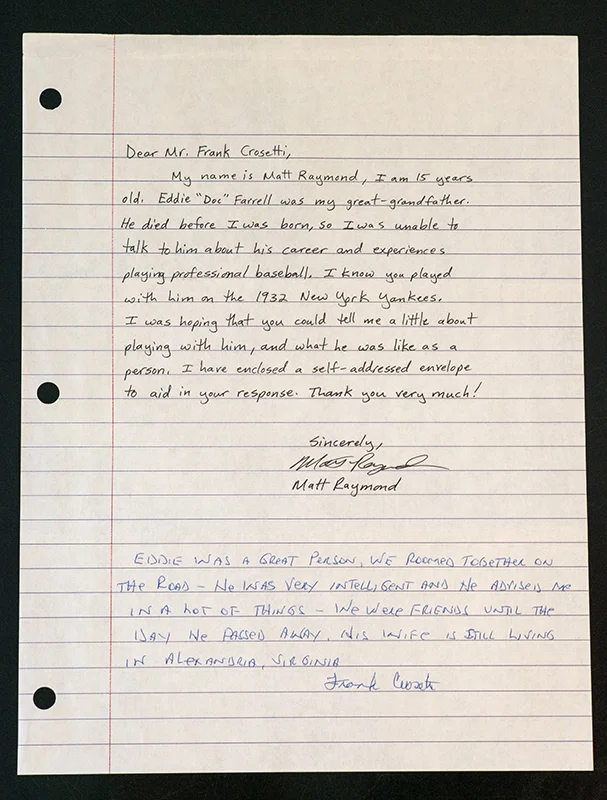 Dear Mr. Frank Crosetti,
My name is Matt Raymond, I am 15 years
old. Eddie "Doc" Farrell was my great-grandfather.
He died before I was born, so I was unable to
talk to him about his career and experiences
playing professional baseball. I know you played
with him on the 1932 New York Yankees.
I was hoping that you could tell me a little about
playing with him, and what he was like as a
person. I have enclosed a self-addressed envelope
to aid in your response. Thank you very much!
Sincerely,
Matt Raymond
Matt Raymond
EDDIE WAS A GREAT PERSON, WE ROOMED TOGETHER ON
THE ROAD - HE WAS VERY INTELLIGENT AND HE ADVISED ME
IN A LOT OF THINGS - WE WERE FRIENDS UNTIL THE
DAY HE PASSED AWAY. HIS WIFE IS STILL LIVING
IN ALEXANDRIA, VIRGINIA
Frank Crosetti